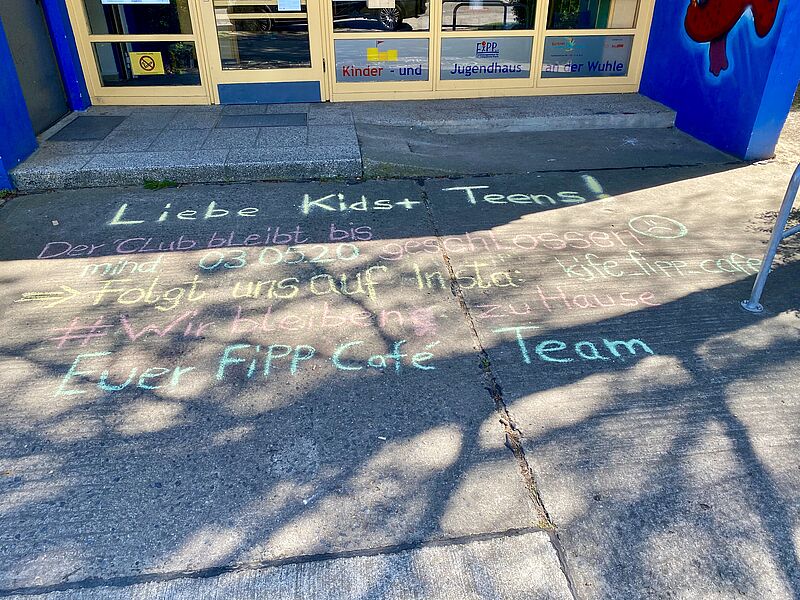 Kinder - und Jugendhaus an der Wuhle
FiPP
Liebe Kids+ Teens!
Der Club bleibt bis geschlossen
mind. 03.05.20
⇒ Folgt uns auf Insta: kife_fipp_cafe
#Wir bleiben zu Hause
Euer FiPP Café Team